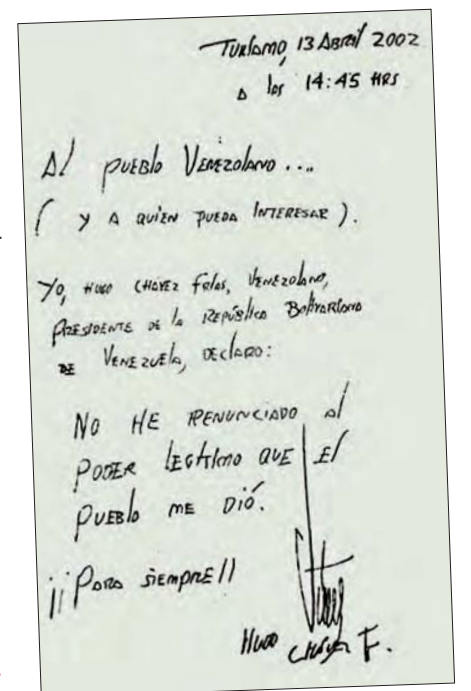 Turiamo, 13 Abril 2002
a las 14:45 HRS
Al pueblo Venezolano....
( y a quien pueda interesar ).
Yo, Hugo Chávez Frías, Venezolano,
Presidente de la República Bolivariana
de Venezuela, declaro:
NO HE RENUNCIADO al
PODER legítimo QUE El
PUEBlo ME DIÓ.
¡¡Para siempre!!
Hugo Chávez F.